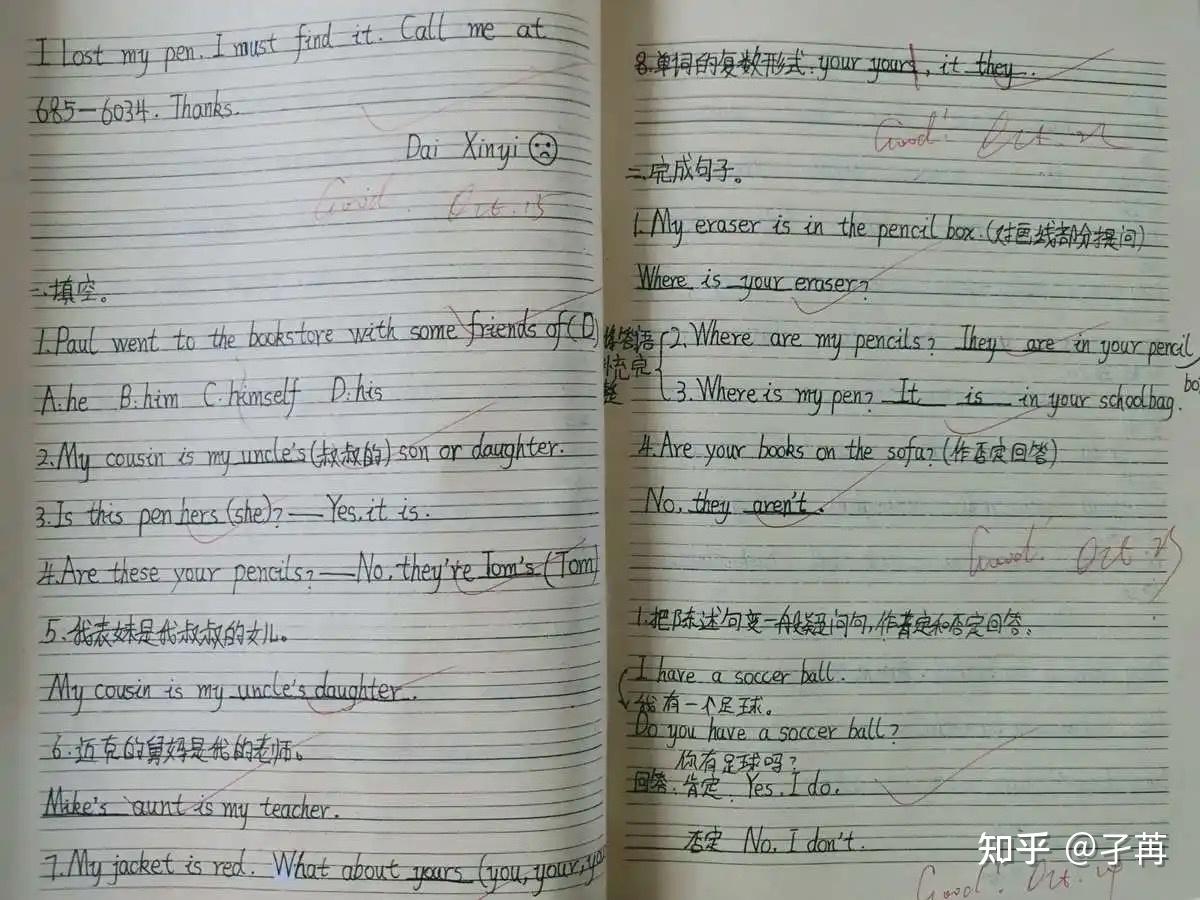 I lost my pen. I must find it. Call me at
685—6034. Thanks.
Dai Xinyi
Good! Oct. 15
二.填空。
1.Paul went to the bookstore with some friends of (D)
A.he B.him C.himself D.his
2.My cousin is my uncle's (叔叔的) son or daughter.
3.Is this pen hers (she)? — Yes, it is.
4.Are these your pencils? — No, they're Tom's (Tom)
5.我表妹是我叔叔的女儿。
My cousin is my uncle's daughter.
6.迈克的舅妈是我的老师。
Mike's aunt is my teacher.
7.My jacket is red. What about yours (you, your,
8.单词的复数形式: your your, it they.
Good! Oct.
三.完成句子。
1.My eraser is in the pencil box. (对画线部分提问)
Where is your eraser?
将答语补充完整
2.Where are my pencils? They are in your pencil
3.Where is my pen? It is in your schoolbag.
4.Are your books on the sofa? (作否定回答)
No, they aren't.
Good! Oct.
1.把陈述句变一般疑问句,作肯定和否定回答。
I have a soccer ball.
我有一个足球。
Do you have a soccer ball?
你有足球吗?
回答: 肯定. Yes, I do.
否定 No, I don't.
Good! Oct.
知乎 @孑苒